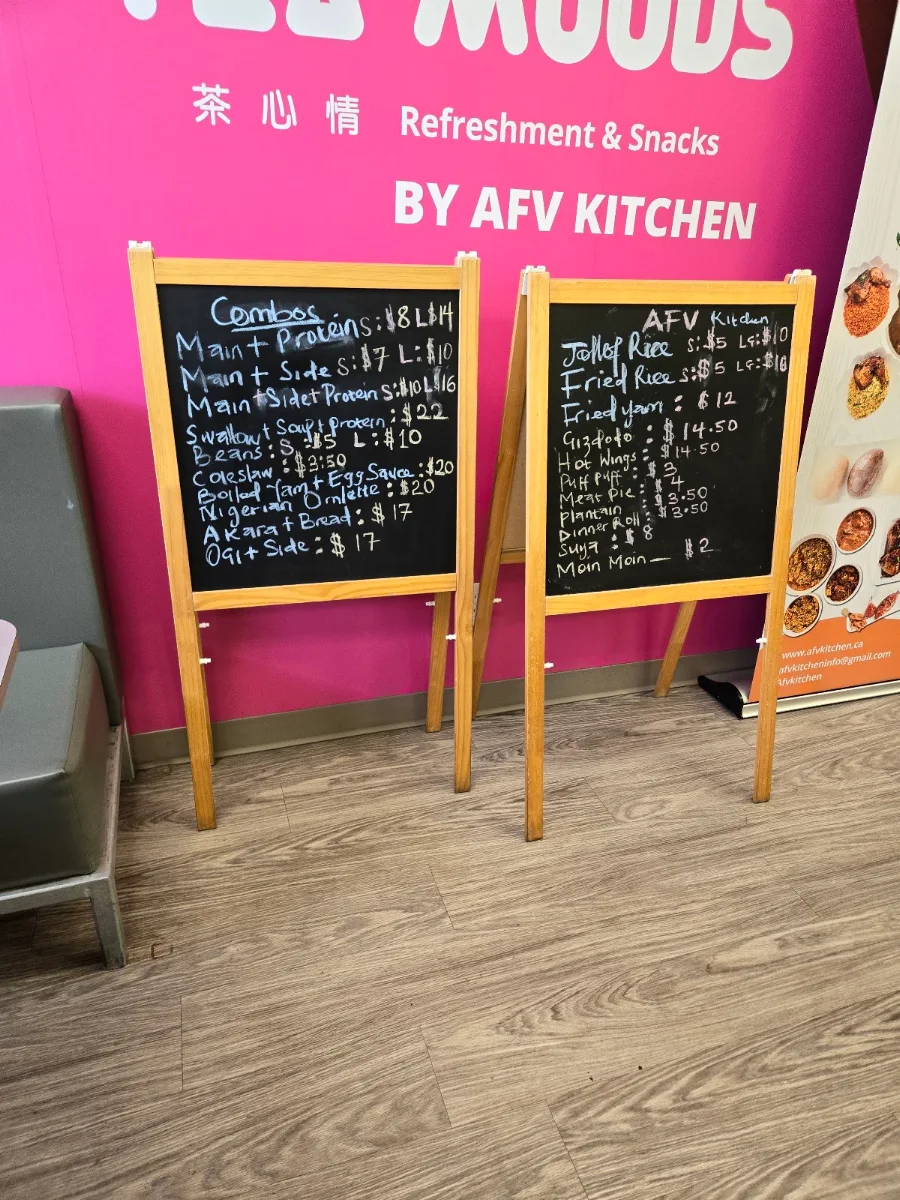 MOODS
茶心情 Refreshment & Snacks
BY AFV KITCHEN
Combos
Main + Protein S: $8 L $14
Main + Side S: $7 L: $10
Main + Side + Protein S: $10 L $16
Swallow + Soup + Protein: $22
Beans: S: $5 L: $10
Coleslaw: $3.50
Boiled Yam + Egg Sauce: $20
Nigerian Omlette: $20
Akara + Bread: $17
Ogi + Side: $17
AFV Kitchen
Jollof Rice S: $5 LG: $10
Fried Rice S: $5 LG: $10
Fried yam: $12
Gizdodo: $14.50
Hot Wings: $14.50
Puff Puff: $3
Meat Pie: $4
Plantain: $3.50
Dinner Roll: $3.50
Suya: $8
Moin Moin — $2
www.afvkitchen.ca
afvkitcheninfo@gmail.com
Afvkitchen